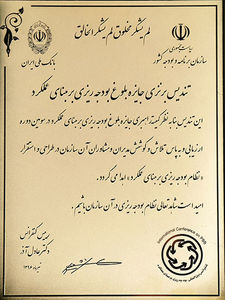 لم یشکر المخلوق لم یشکر الخالق
ریاست جمهوری
سازمان برنامه و بودجه کشور
بانک ملی ایران
تندیس برنزی جایزه بلوغ بودجه ریزی بر مبنای عملکرد
این تندیس بنا به نظر کمیته راهبری جایزه بلوغ بودجه ریزی بر مبنای عملکرد در سومین دوره
ارزیابی و به پاس تلاش و کوشش مدیران و مشاوران آن سازمان در طراحی و استقرار
«نظام بودجه ریزی بر مبنای عملکرد» اهدا می گردد.
امید است شاهد تعالی نظام بودجه ریزی در آن سازمان باشیم.
رییس کنفرانس
دکتر عادل آذر
International Conference on PBB